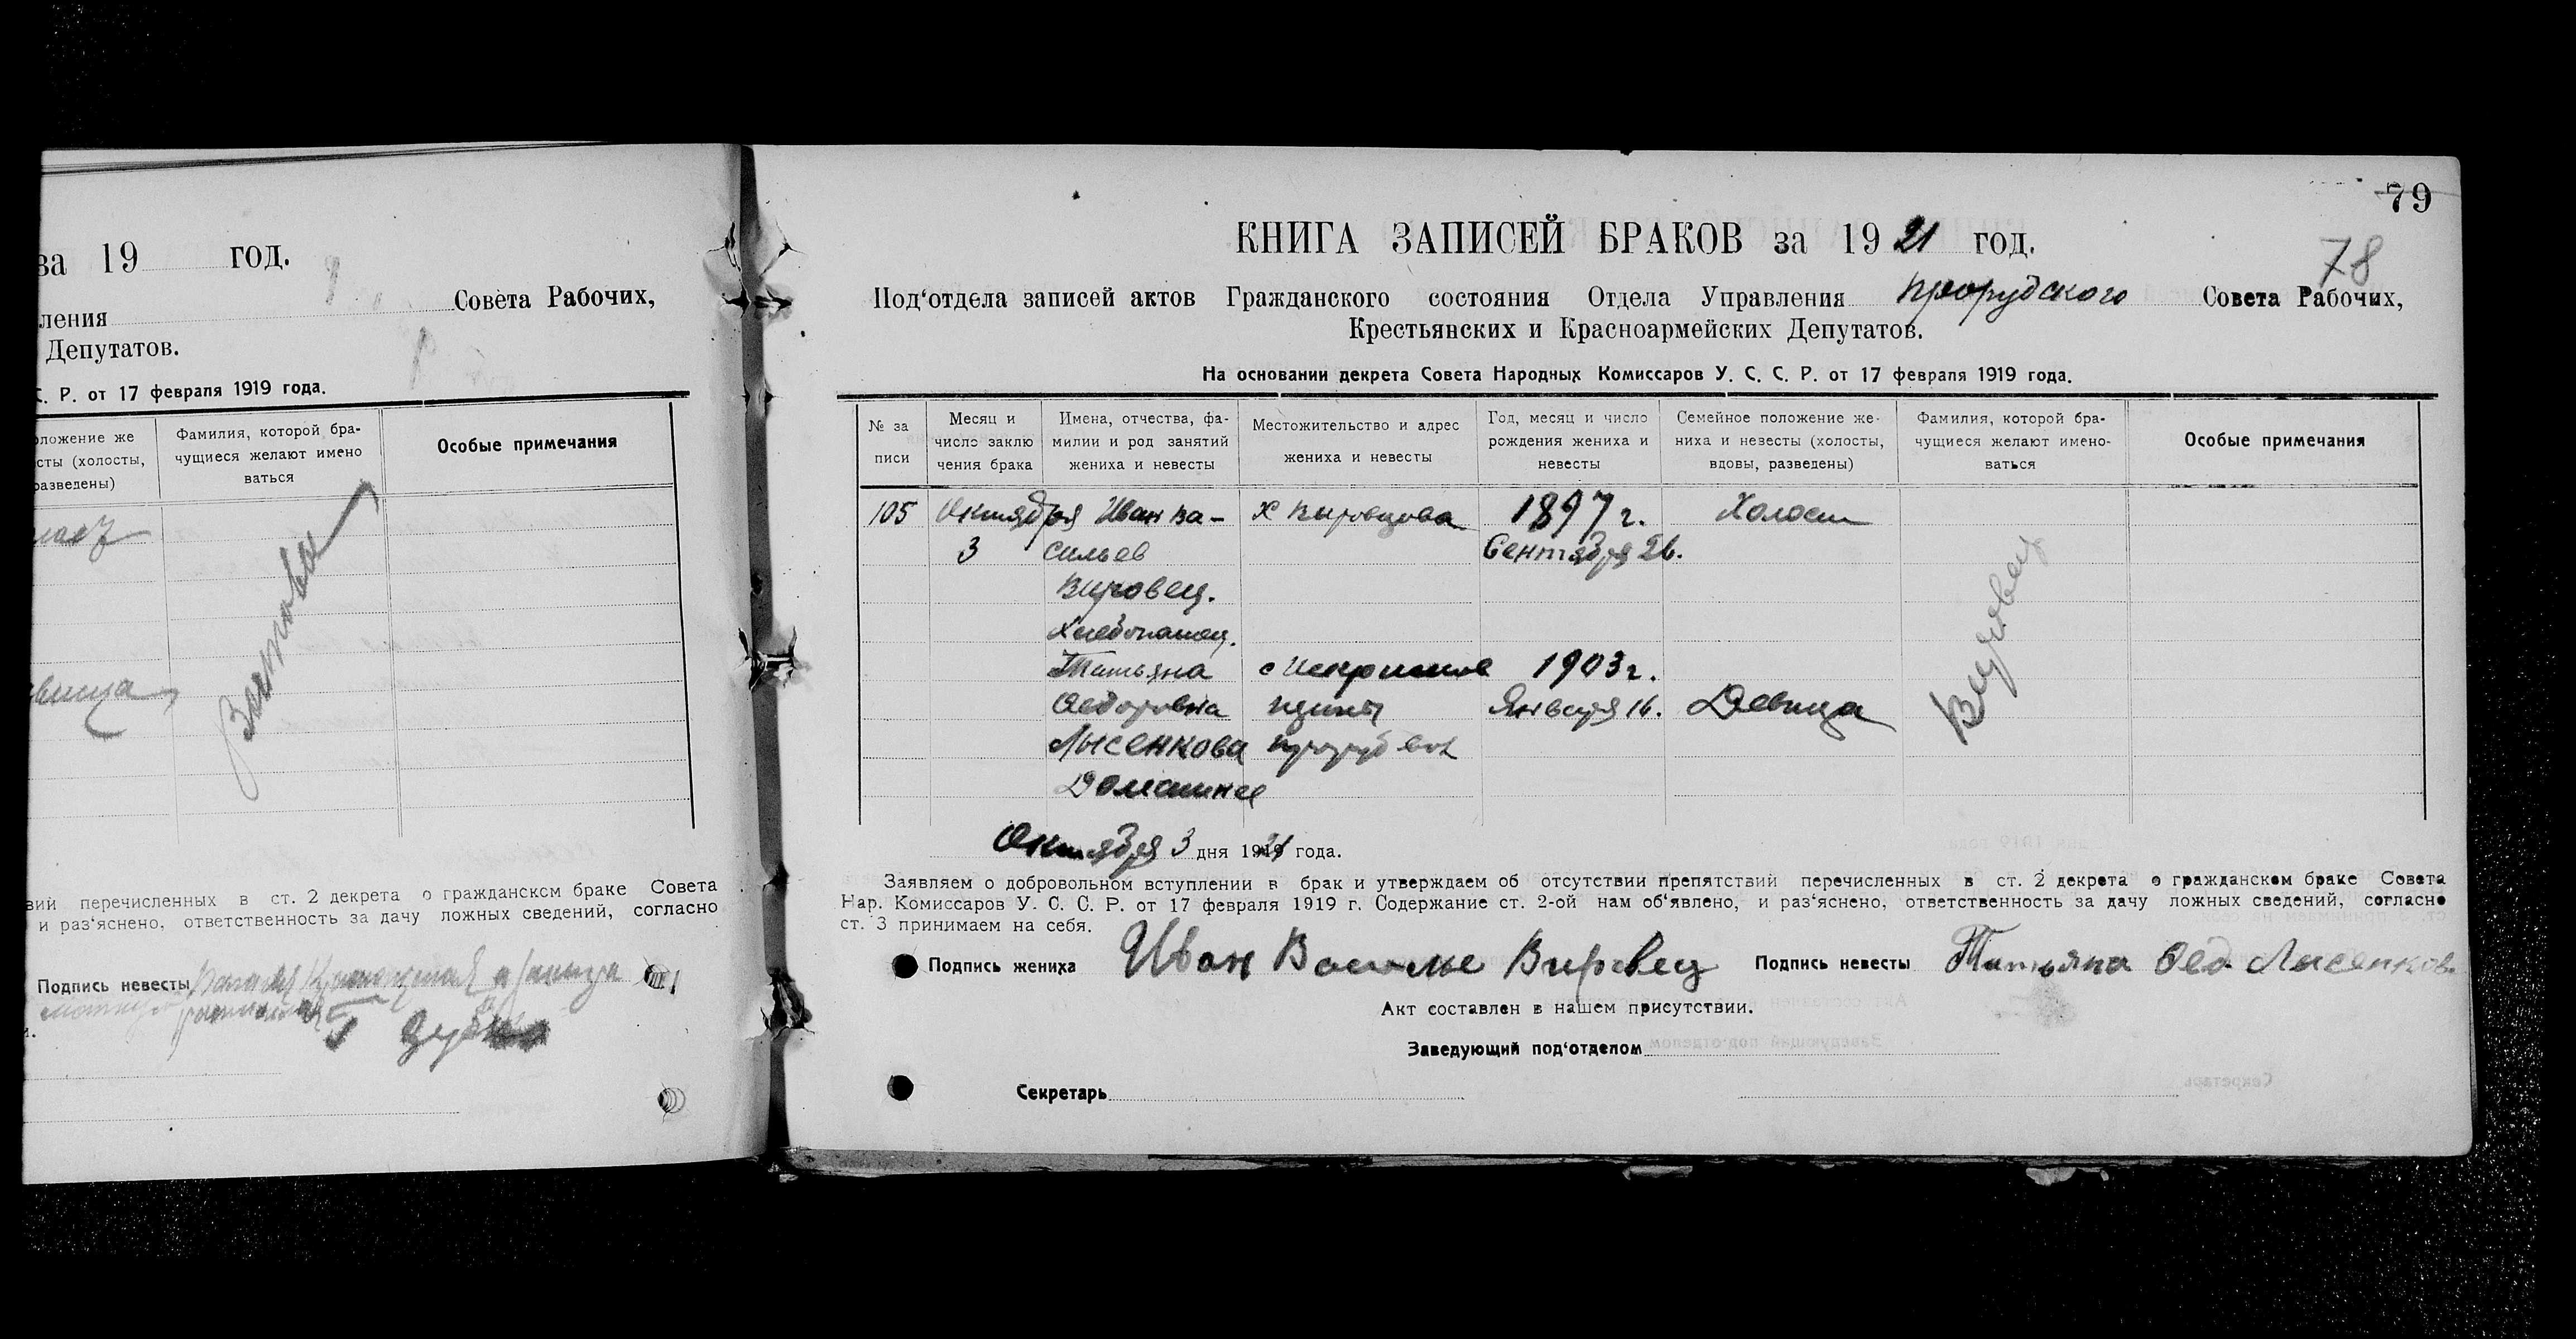 за 19 год.
Совета Рабочих,
вления
Депутатов.
С. Р. от 17 февраля 1919 года.
оложение же
сты (холосты,
разведены)
Фамилия, которой бра-
чущиеся желают имено
ваться
Особые примечания
вица
вий перечисленных в ст. 2 декрета о гражданском браке Совета
и раз‘яснено, ответственность за дачу ложных сведений, согласно
Подпись невесты
79
78
КНИГА ЗАПИСЕЙ БРАКОВ за 1921 год.
Под‘отдела записей актов Гражданского состояния Отдела Управления Прорубского Совета Рабочих,
Крестьянских и Красноармейских Депутатов.
На основании декрета Совета Народных Комиссаров У. С. С. Р. от 17 февраля 1919 года.
№ за
писи
Месяц и
число заклю
чения брака
Имена, отчества, фа-
милии и род занятий
жениха и невесты
Местожительство и адрес
жениха и невесты
Год, месяц и число
рождения жениха и
невесты
Семейное положение же-
ниха и невесты (холосты,
вдовы, разведены)
Фамилия, которой бра-
чущиеся желают имено-
ваться
Особые примечания
105 Октября Иван Ва- х Вировцова 1897 г. Холост
3 сильев Сентября 26.
Вировец.
Хлебопашец.
Татьяна 1903 г.
Федоровна Января 16. Девица
Лысенкова
Домашнее
Вировец
Октября 3 дня 1921 года.
Заявляем о добровольном вступлении в брак и утверждаем об отсутствии препятствий перечисленных в ст. 2 декрета о гражданском браке Совета
Нар. Комиссаров У. С. С. Р. от 17 февраля 1919 г. Содержание ст. 2-ой нам об‘явлено, и раз‘яснено, ответственность за дачу ложных сведений, согласно
ст. 3 принимаем на себя.
Подпись жениха Иван Василье Вировец Подпись невесты Татьяна Фед. Лысенкова
Акт составлен в нашем присутствии.
Заведующий под‘отделом
Секретарь